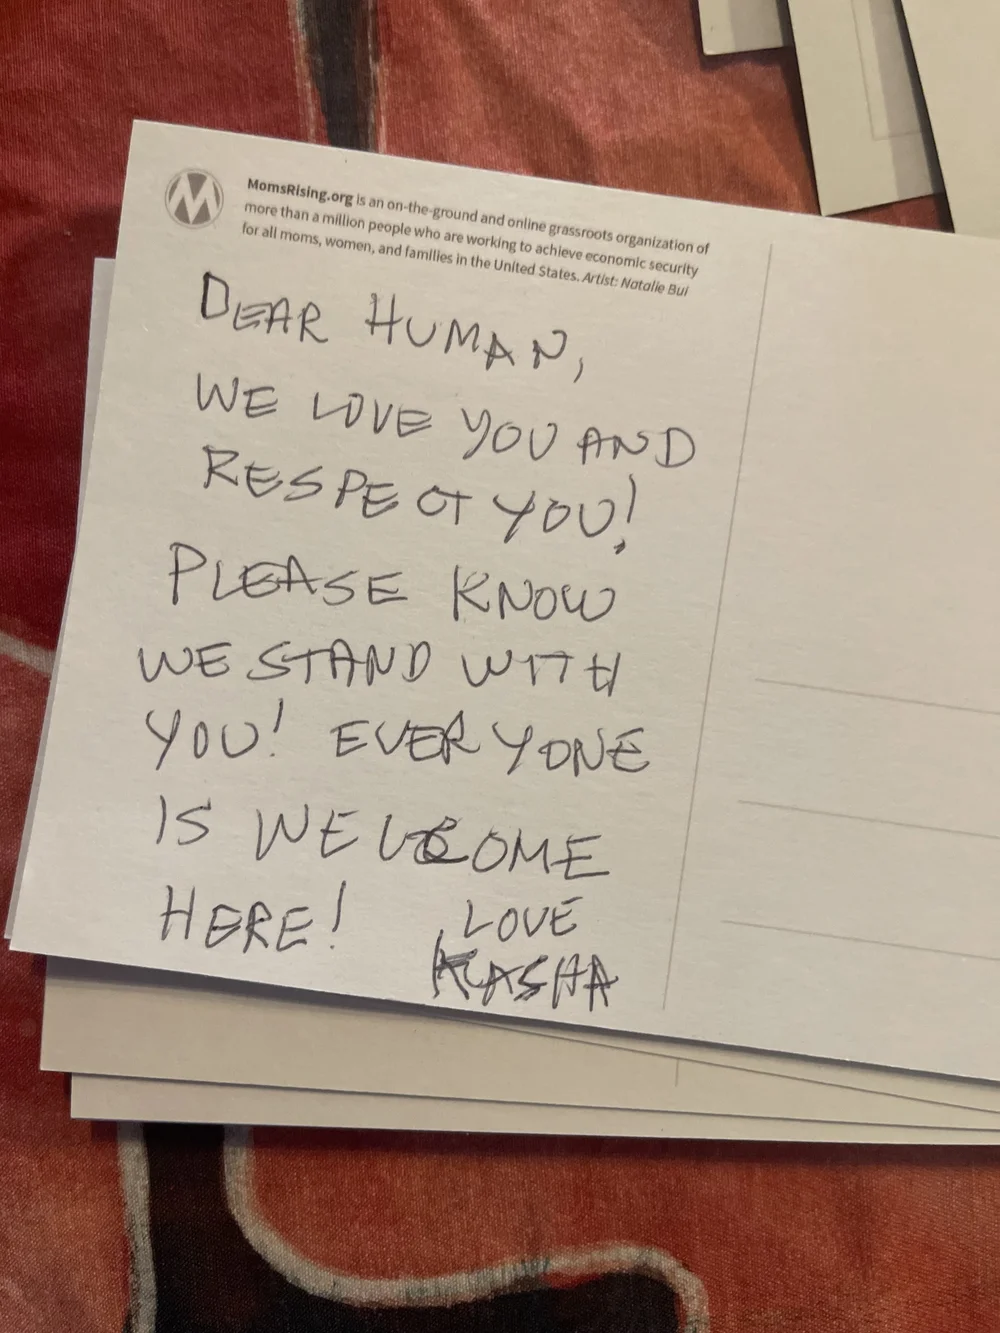 MomsRising.org is an on-the-ground and online grassroots organization of
more than a million people who are working to achieve economic security
for all moms, women, and families in the United States. Artist: Natalie Bui
DEAR HUMAN,
WE LOVE YOU AND
RESPECT YOU!
PLEASE KNOW
WE STAND WITH
YOU! EVERYONE
IS WELCOME
HERE! LOVE
KASHA